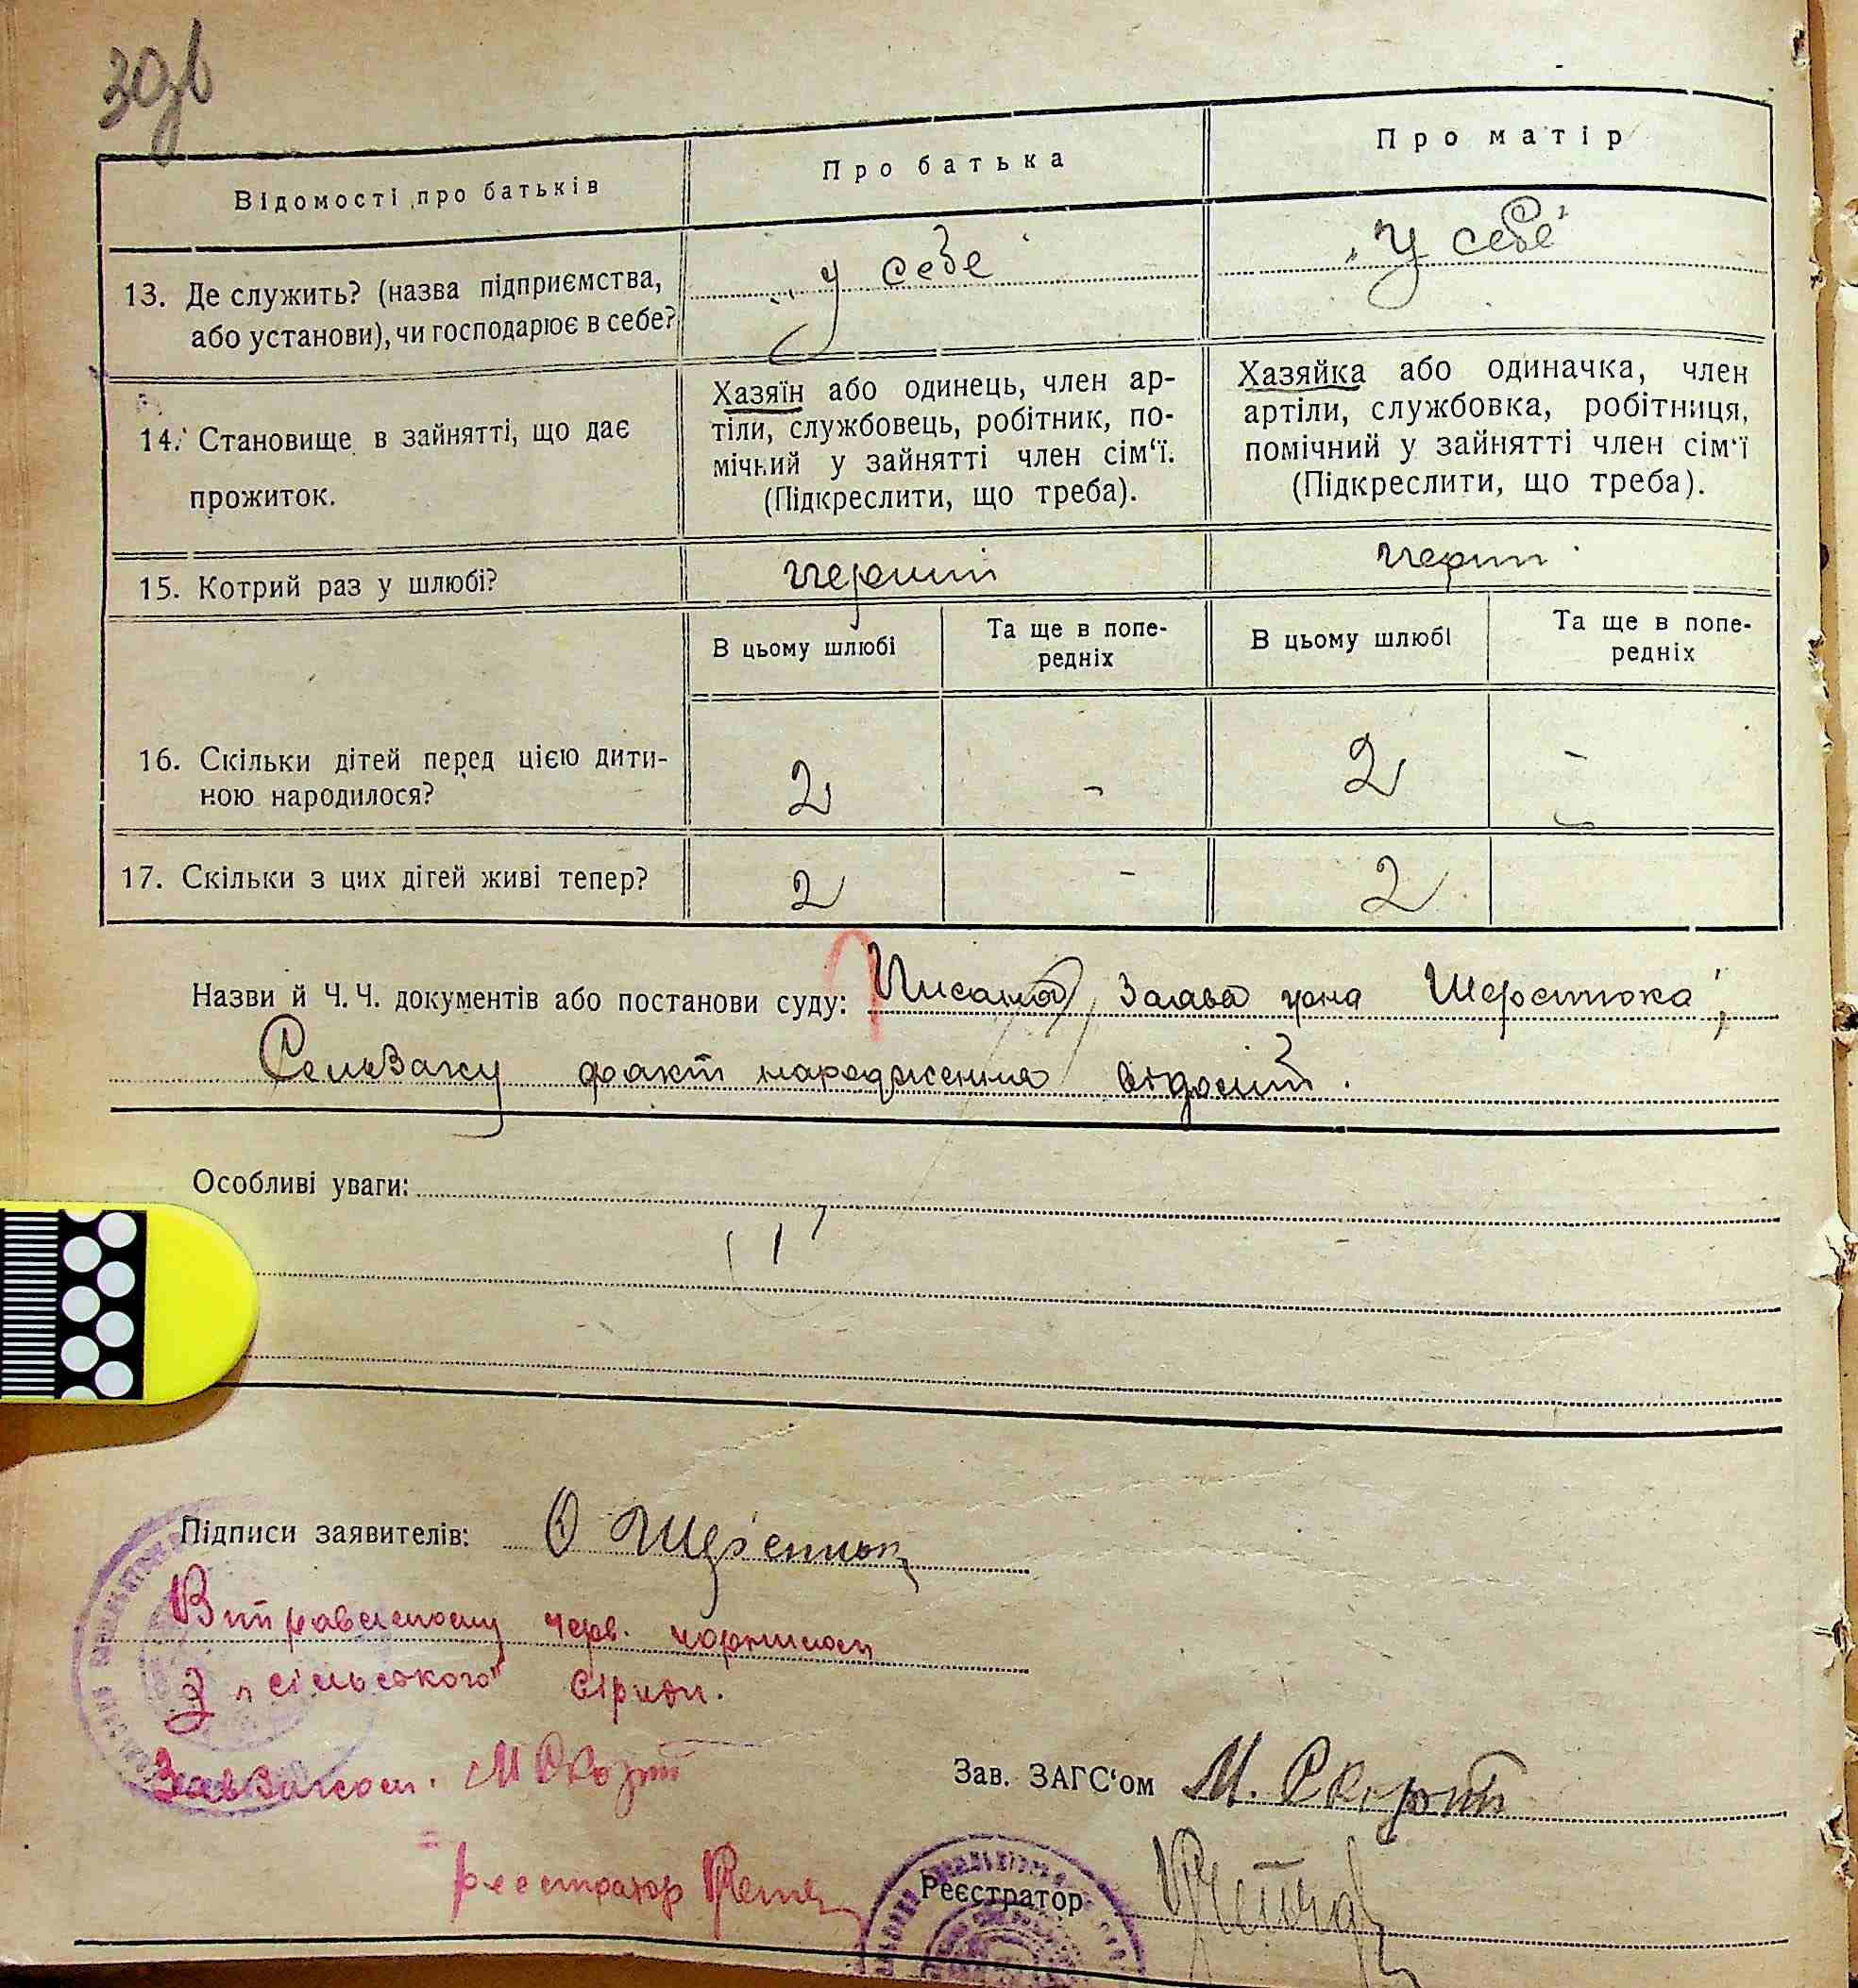 30зв
Відомості про батьків
Про батька
Про матір
13. Де служить? (назва підприємства,
або установи), чи господарює в себе?
у себе
"У себе"
14. Становище в зайнятті, що дає
прожиток.
Хазяїн або одинець, член ар-
тіли, службовець, робітник, по-
мічний у зайнятті член сім'ї.
(Підкреслити, що треба).
Хазяйка або одиначка, член
артіли, службовка, робітниця,
помічний у зайнятті член сім'ї
(Підкреслити, що треба).
15. Котрий раз у шлюбі?
перший
перш
В цьому шлюбі
Та ще в попе-
редніх
В цьому шлюбі
Та ще в попе-
редніх
16. Скільки дітей перед цією дити-
ною народилося?
2
-
2
-
17. Скільки з цих дітей живі тепер?
2
-
2
Назви й Ч. Ч. документів або постанови суду: Заява Шерстюка;
факт народження відомий.
Особливі уваги:
Підписи заявителів:
Виправленому черв. чорнилом
З "сільського" вірити.
Завзагсом. М Скорит
Зав. ЗАГС'ом М. Скорит
Реєстратор
Реєстратор